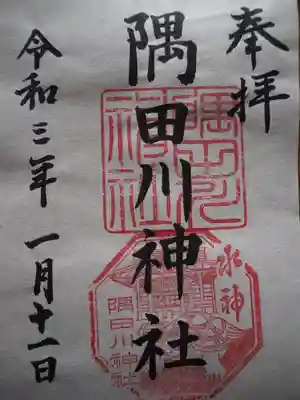 奉拝
隅田川神社
令和三年 一月十一日
隅田川
神社
水神
隅田川
神社